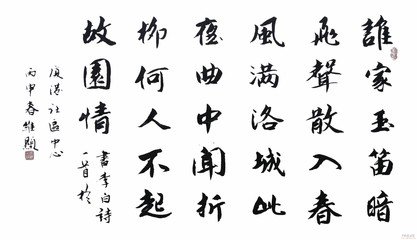 誰家玉笛暗
飛聲散入春
風满洛城此
夜曲中聞折
柳何人不起
故園情
書李白詩
一首於
港社區中心
丙申春維